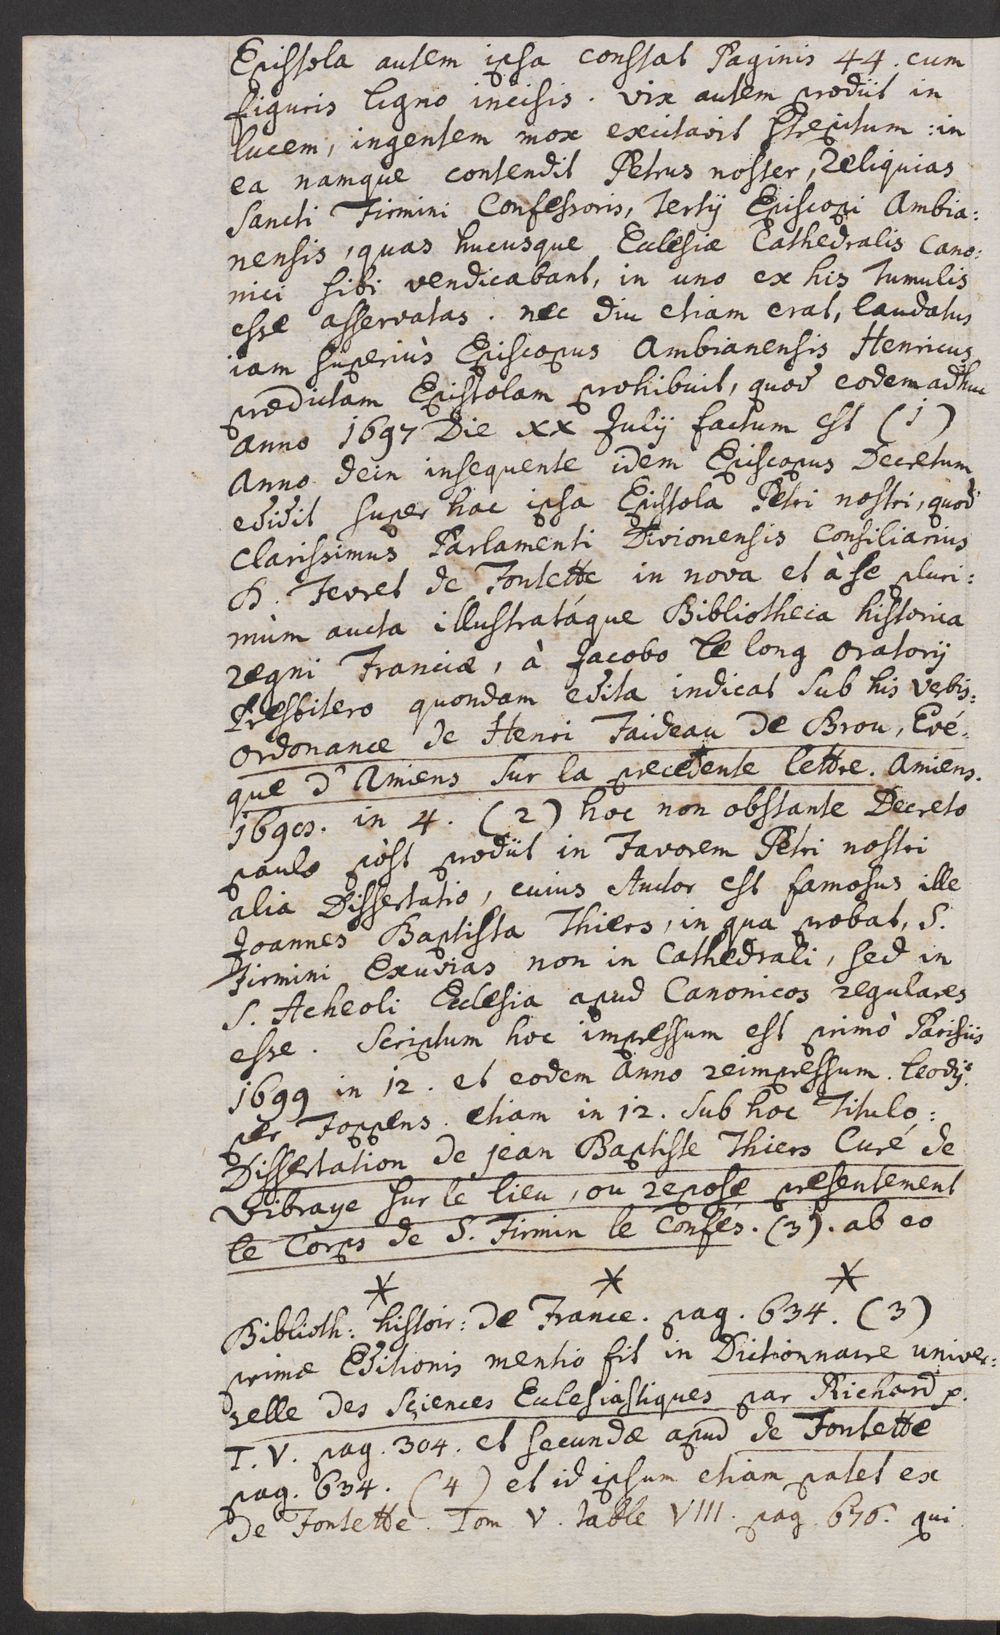 Epistola autem ipsa constat Paginis 44. cum
figuris ligno incisis. vix autem prodiit in
lucem, ingentem mox excitavit strepitum: in
ea namque contendit Petrus noster, Reliquias
Sancti Firmini Confessoris, tertij Episcopi Ambia:
nensis, quas hucusque Eclesiæ Cathedralis Cano:
nici sibi vendicabant, in uno ex his tumulis
esse asservatas. nec diu etiam erat, laudatus
iam superiùs Episcopus Ambianensis Henricus
prædictam Epistolam prohibuit, quod eodem adhuc
anno 1697 Die xx Julij factum est (1)
Anno dein insequente idem Episcopus Decretum
edidit super hac ipsa Epistola Petri nostri, quod
clarissimus Parlamenti Divionensis Consiliarius
D. Fevret de Fontette in nova et à se pluri:
mùm aucta illustratáque Bibliotheca historica
regni Franciæ, à Jacobo le long Oratorij
Presbitero quondam edita indicat sub his verbis:
Ordonance de Henri Faideau de Brou, Evé:
que d'Amiens sur la precedente lettre. Amiens.
1698. in 4. (2) hoc non obstante Decreto
paulo pòst prodiit in Favorem Petri nostri
alia Dissertatio, cuius Auctor est famosus ille
Joannes Baptista Thiers, in qua probat, S.
Firmini Exuvias non in Cathedrali, sed in
S. Acheoli Eclesia apud Canonicos regulares
esse. Scriptum hoc impressum est primò Parisiis
1699 in 12. et eodem Anno reimpressum. leodij
per Foppens. etiam in 12. sub hoc Titulo:
Dissertation de jean Baptiste Thiers Curé de
Vibraye sur le lieu, ou repose presentement
le Corps de S. Firmin le Confés. (3). ab eo
* * *
Biblioth: histoir: de France. pag. 634. (3)
primæ Editionis mentio fit in Dictionnaire univer:
selle des Sciences Eclesiastiques par Richard p.
T. V. pag. 304. et secundæ apud de Fontette
pag. 634. (4) et id ipsum etiam patet ex
de Fontette. Tom V. table VIII. pag 676. qui